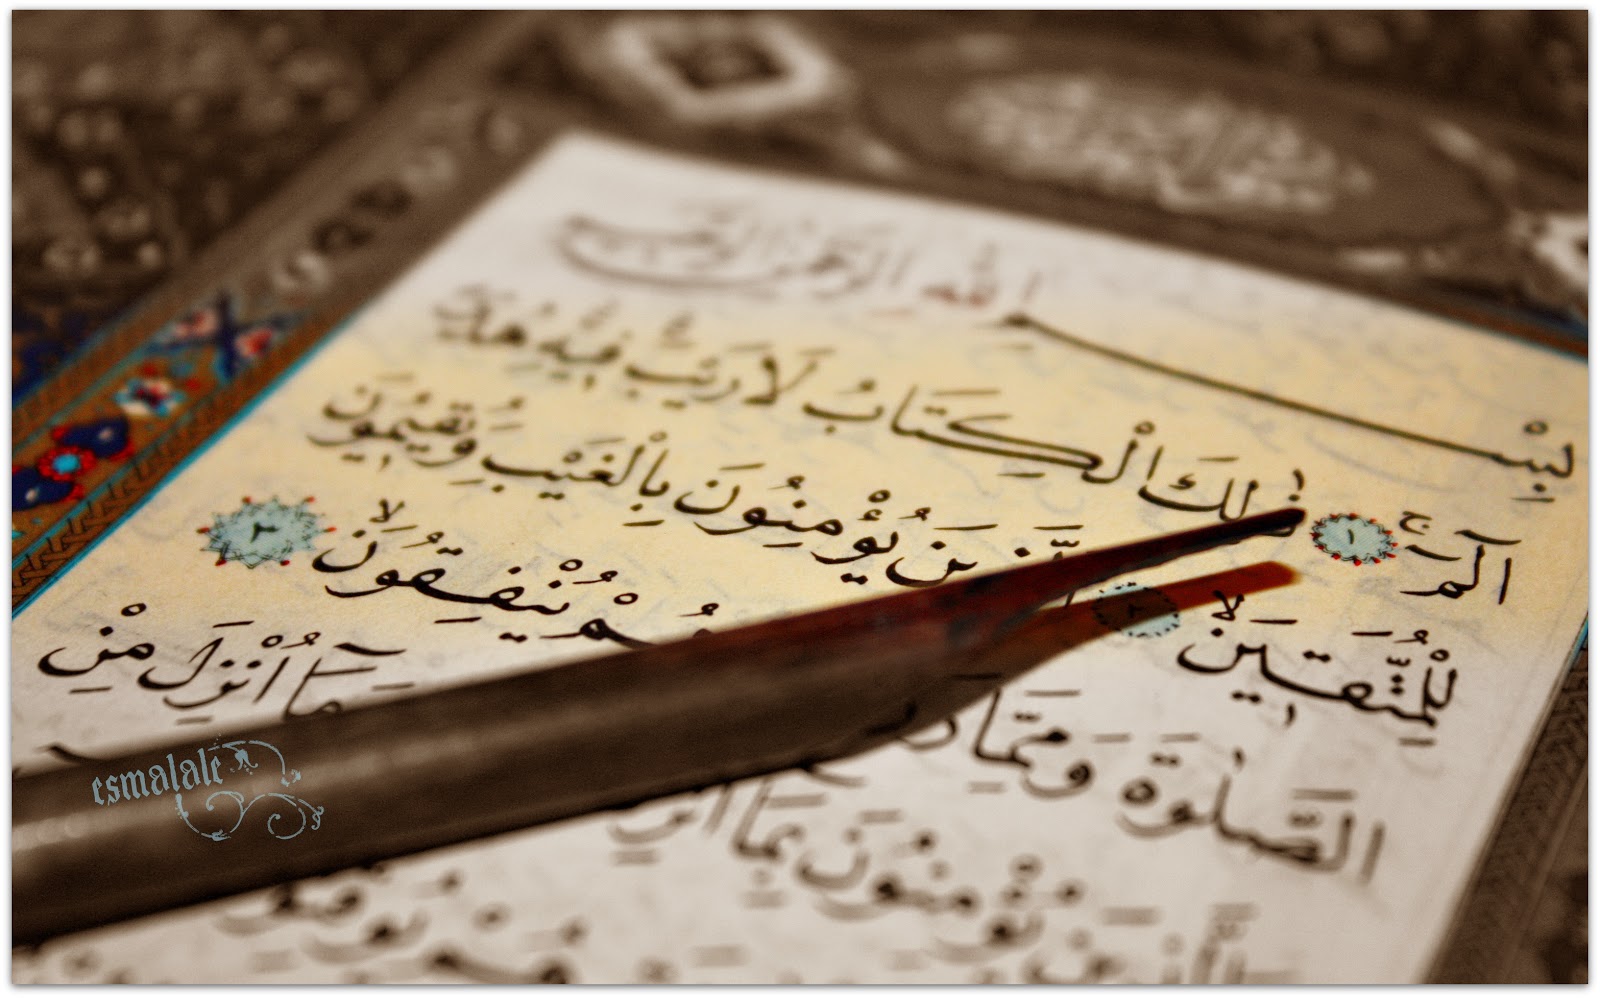 بِسْمِ اللهِ الرَّحْمٰنِ الرَّحِيمِ
الٓمٓ ۚ ١ ذٰلِكَ الْكِتَابُ لَا رَيْبَ فِيهِ هُدًى
لِلْمُتَّقِينَ ۙ ٢ اَلَّذِينَ يُؤْمِنُونَ بِالْغَيْبِ وَيُقِيمُونَ
الصَّلٰوةَ وَمِمَّا يُنْفِقُونَ ۙ ٣
يُؤْمِنُونَ بِمَٓا مَٓا اُنْزِلَ مِنْ
هُمْ يُوقِنُونَ
esmalale